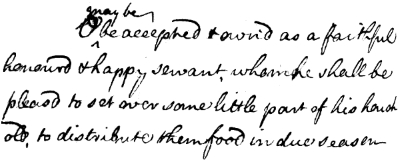 may be
O be accepted & own'd as a faithful
honourd & happy servant, whom he shall be
pleasd to set over some little part of his houſh
old, to distribute them food in due season